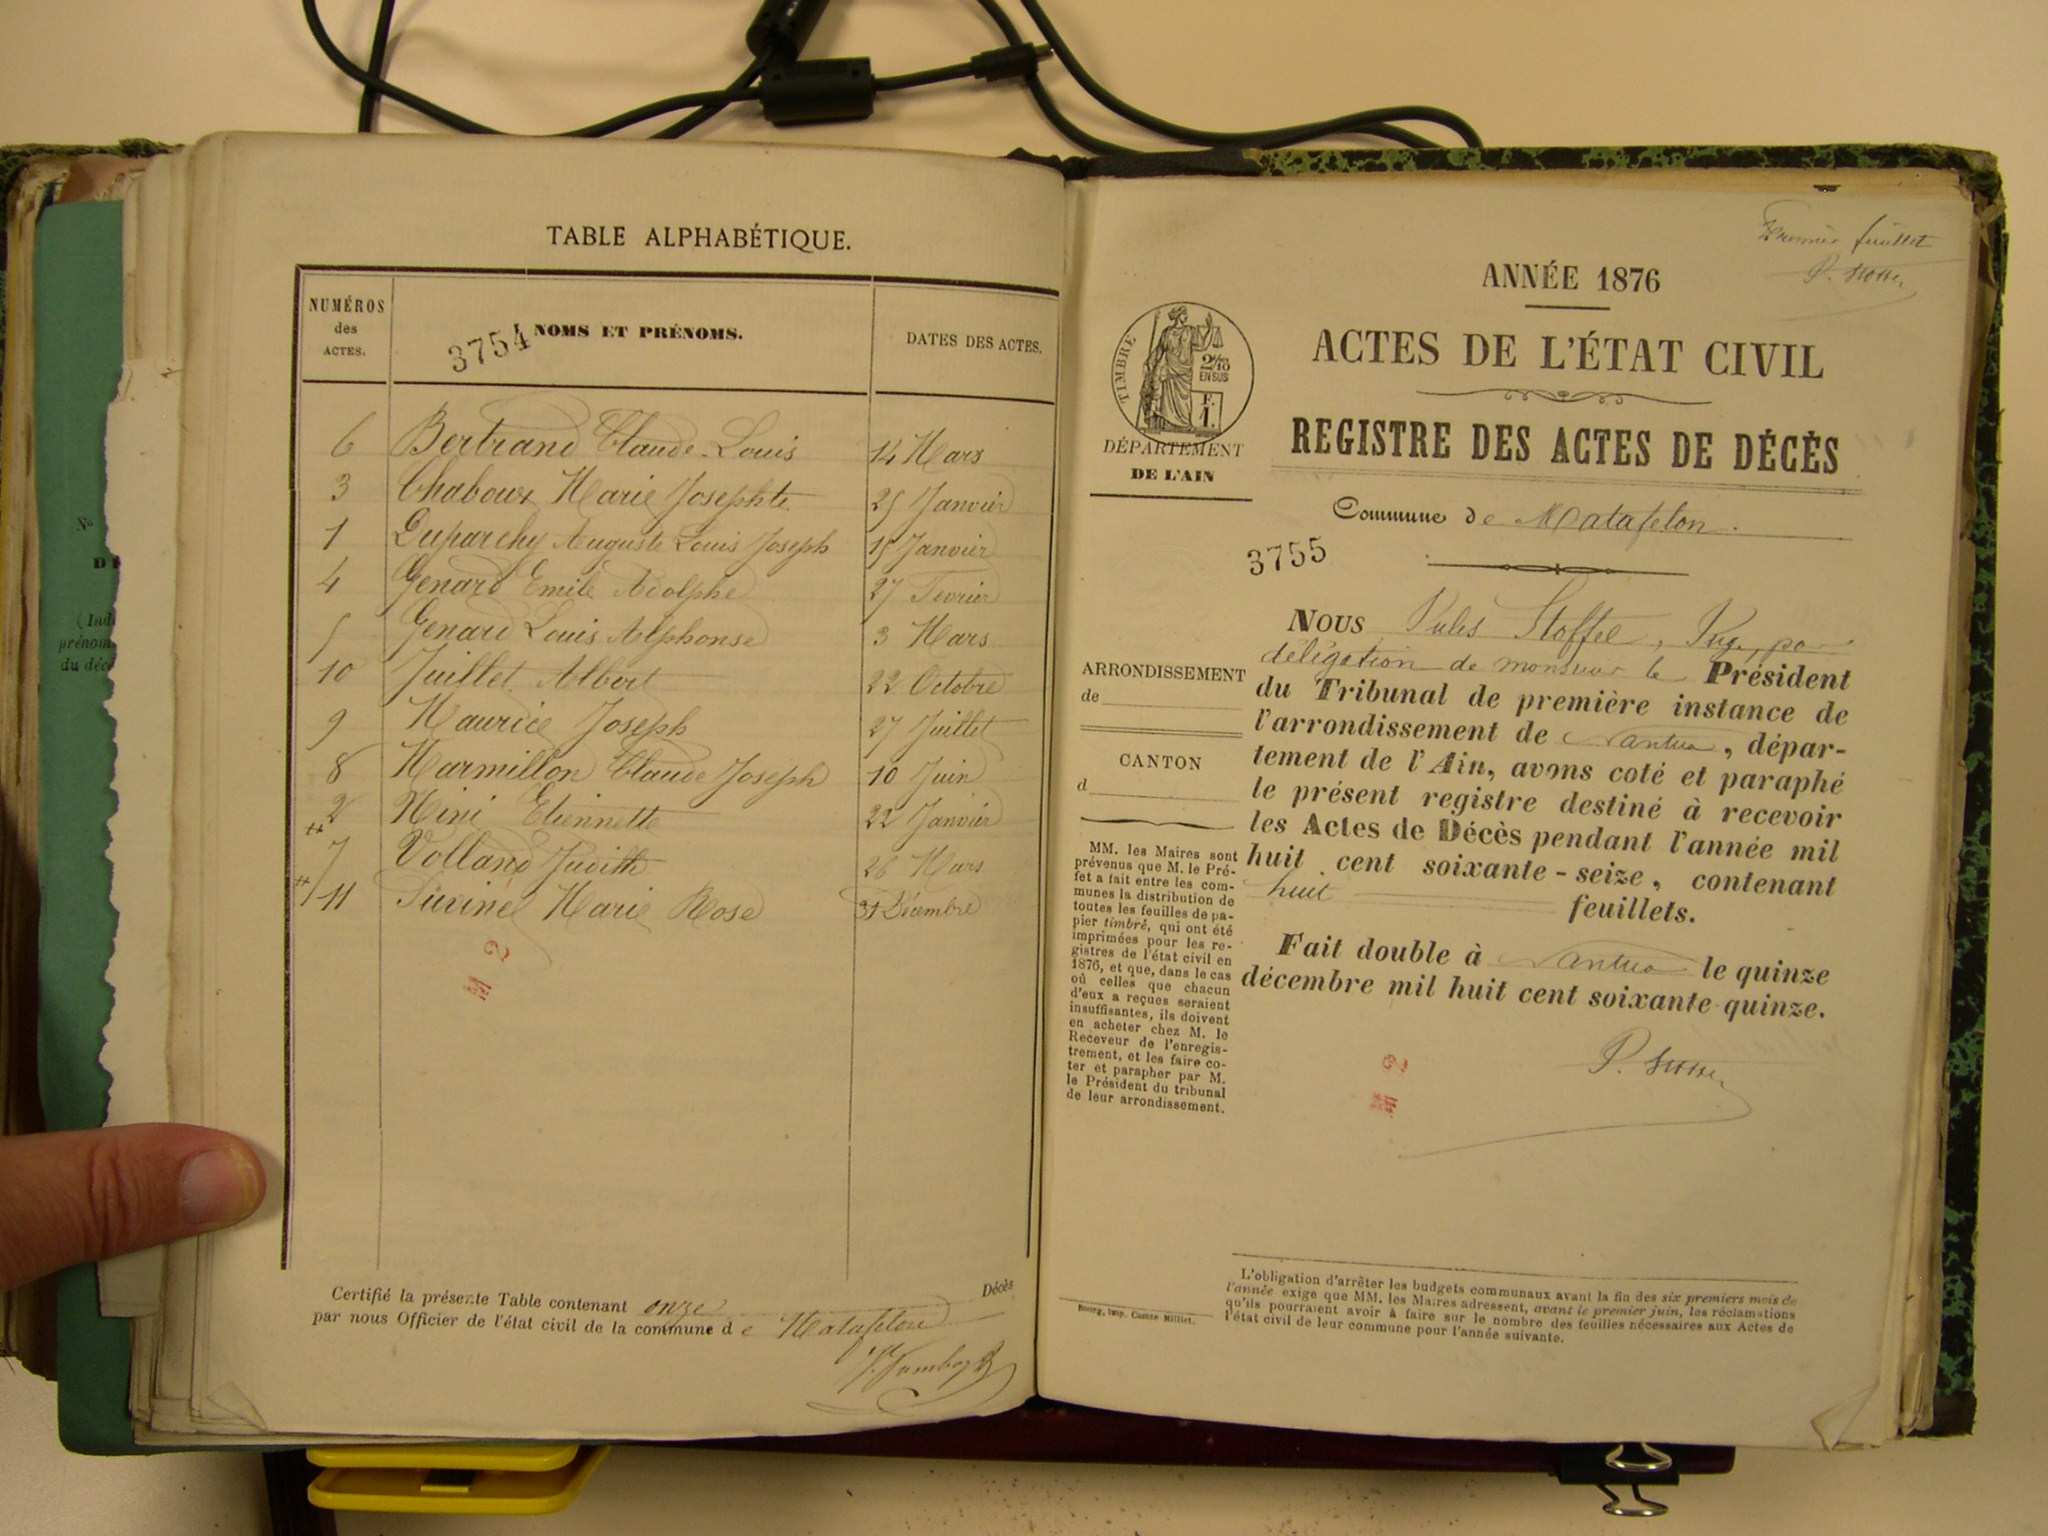 TABLE ALPHABÉTIQUE.
NUMÉROS
des
ACTES.
3754
NOMS ET PRÉNOMS.
DATES DES ACTES.
6 Bertrand Claude-Louis 14 Mars
3 Chaboux Marie Josephte 25 Janvier
1 Duparchy Auguste Louis Joseph 15 Janvier
4 Genard Emile Adolphe 27 Fevrier
5 Genard Louis Alphonse 3 Mars
10 Juillet Albert 22 Octobre
9 Maurice Joseph 27 Juillet
8 Marmillon Claude Joseph 10 Juin
2 Nini Etiennette 22 Janvier
7 Volland Judith 26 Mars
11 Marie Rose 31 Décembre
M 2
Certifié la présente Table contenant onze Décès
par nous Officier de l'état civil de la commune de Matafelon
Nº
(Ind
prénom
du déc
Premier feuillet
ANNÉE 1876
ACTES DE L'ÉTAT CIVIL
REGISTRE DES ACTES DE DÉCÈS
TIMBRE
2/10
EN SUS
F.
1.
DÉPARTEMENT
DE L'AIN
Commune de Matafelon.
3755
ARRONDISSEMENT
de
CANTON
d
MM. les Maires sont
prévenus que M. le Pré-
fet a fait entre les com-
munes la distribution de
toutes les feuilles de pa-
pier timbré, qui ont été
imprimées pour les re-
gistres de l'état civil en
1876, et que, dans le cas
où celles que chacun
d'eux a reçues seraient
insuffisantes, ils doivent
en acheter chez M. le
Receveur de l'enregis-
trement, et les faire co-
ter et parapher par M.
le Président du tribunal
de leur arrondissement.
NOUS Jules Stoffel, Juge, par
délégation de monsieur le Président
du Tribunal de première instance de
l'arrondissement de Nantua, dépar-
tement de l'Ain, avons coté et paraphé
le présent registre destiné à recevoir
les Actes de Décès pendant l'année mil
huit cent soixante-seize, contenant
huit feuillets.
Fait double à Nantua le quinze
décembre mil huit cent soixante-quinze.
M 2
Bourg, Imp. Comte Milliet.
L'obligation d'arrêter les budgets communaux avant la fin des six premiers mois de
l'année exige que MM. les Maires adressent, avant le premier juin, les réclamations
qu'ils pourraient avoir à faire sur le nombre des feuilles nécessaires aux Actes de
l'état civil de leur commune pour l'année suivante.